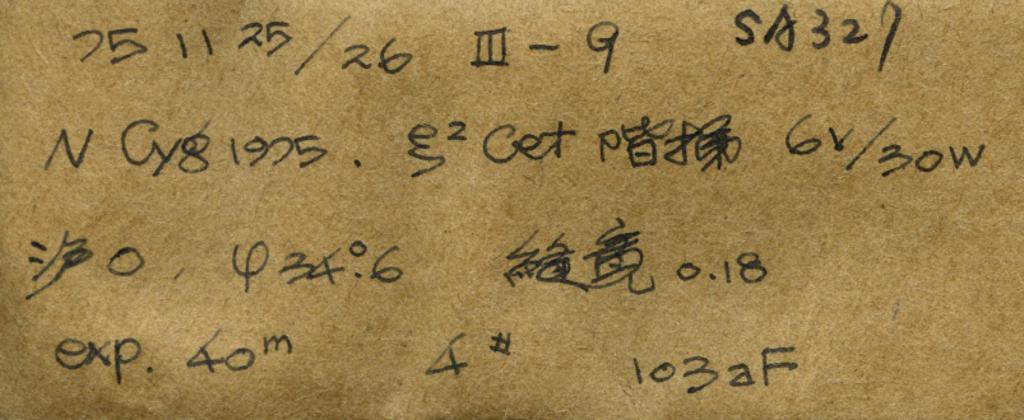 75 11 25/26 III-9 SA327
N Cyg 1975. ξ² Cet 階梯 6V/30W
沪0. φ34°.6 縫宽 0.18
exp. 40ᵐ 4# 103aF